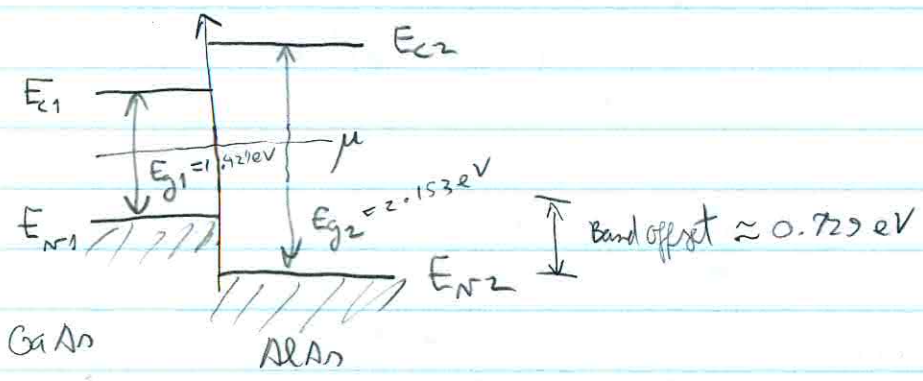 E_c2
E_c1
μ
E_g1 = 1.424 eV
E_g2 = 2.153 eV
E_v1
Band offset ≈ 0.729 eV
E_v2
GaAs
AlAs